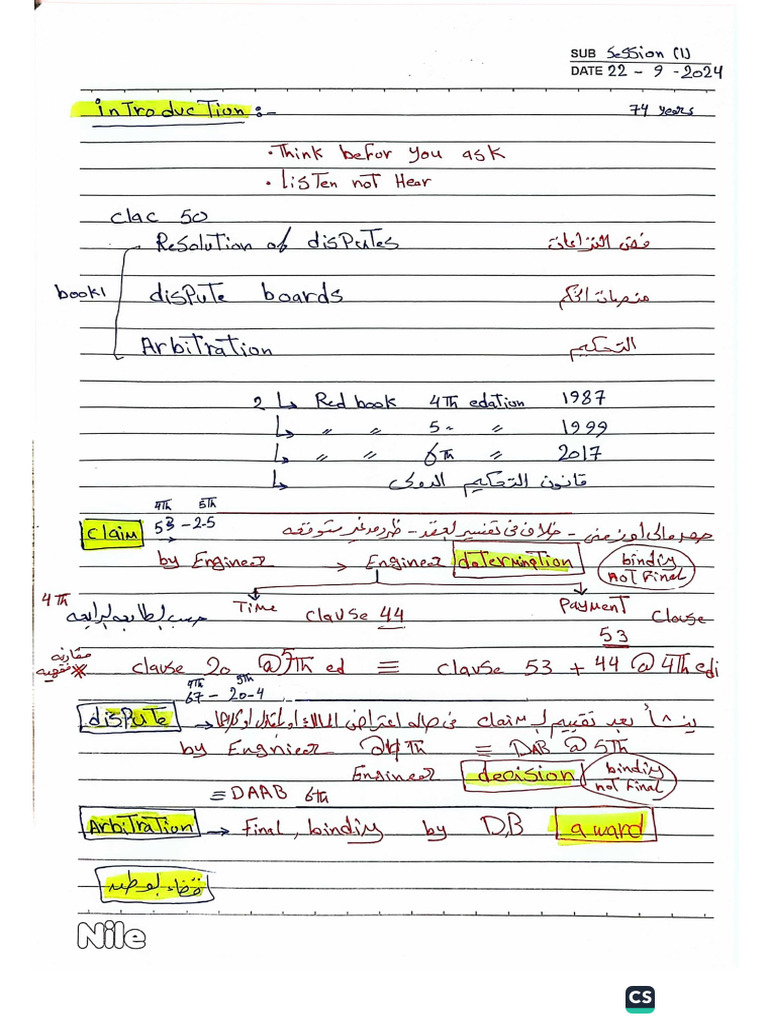 SUB Session (1)
DATE 22 - 9 - 2024
introduction :- 74 years
• Think befor you ask
• listen not Hear
clac 50
Resolution of disputes فض النزاعات
book1 dispute boards منصات الحكم
Arbitration التحكيم
2 ↳ Red book 4th edation 1987
↳ " " 5 " " 1999
↳ " " 6th " 2017
↳ قانون التحكيم الدولى
4th 5th
claim 53 - 2.5 حصر مالى أو زمنى - خلاف فى تفسير العقد - ظروف غير متوقعه
by Engineer → Engineer determination bindiy not Final
4th حسب الطابعه الرابعه Time clause 44 Payment clause 53
مقارنه فقهية * clause 20 @ 5th ed ≡ clause 53 + 44 @ 4th edi
4th 5th
67 - 20-4
dispute → ينشأ بعد تقييم ال claim فى حاله اعتراض المالك او المقاول او كلاهما
by Engnieer @ 4th ≡ DAB @ 5th
Engineer decision bindiy not Final
≡ DAAB 6th
Arbitration → Final, bindiy by DB award
Nile
CS